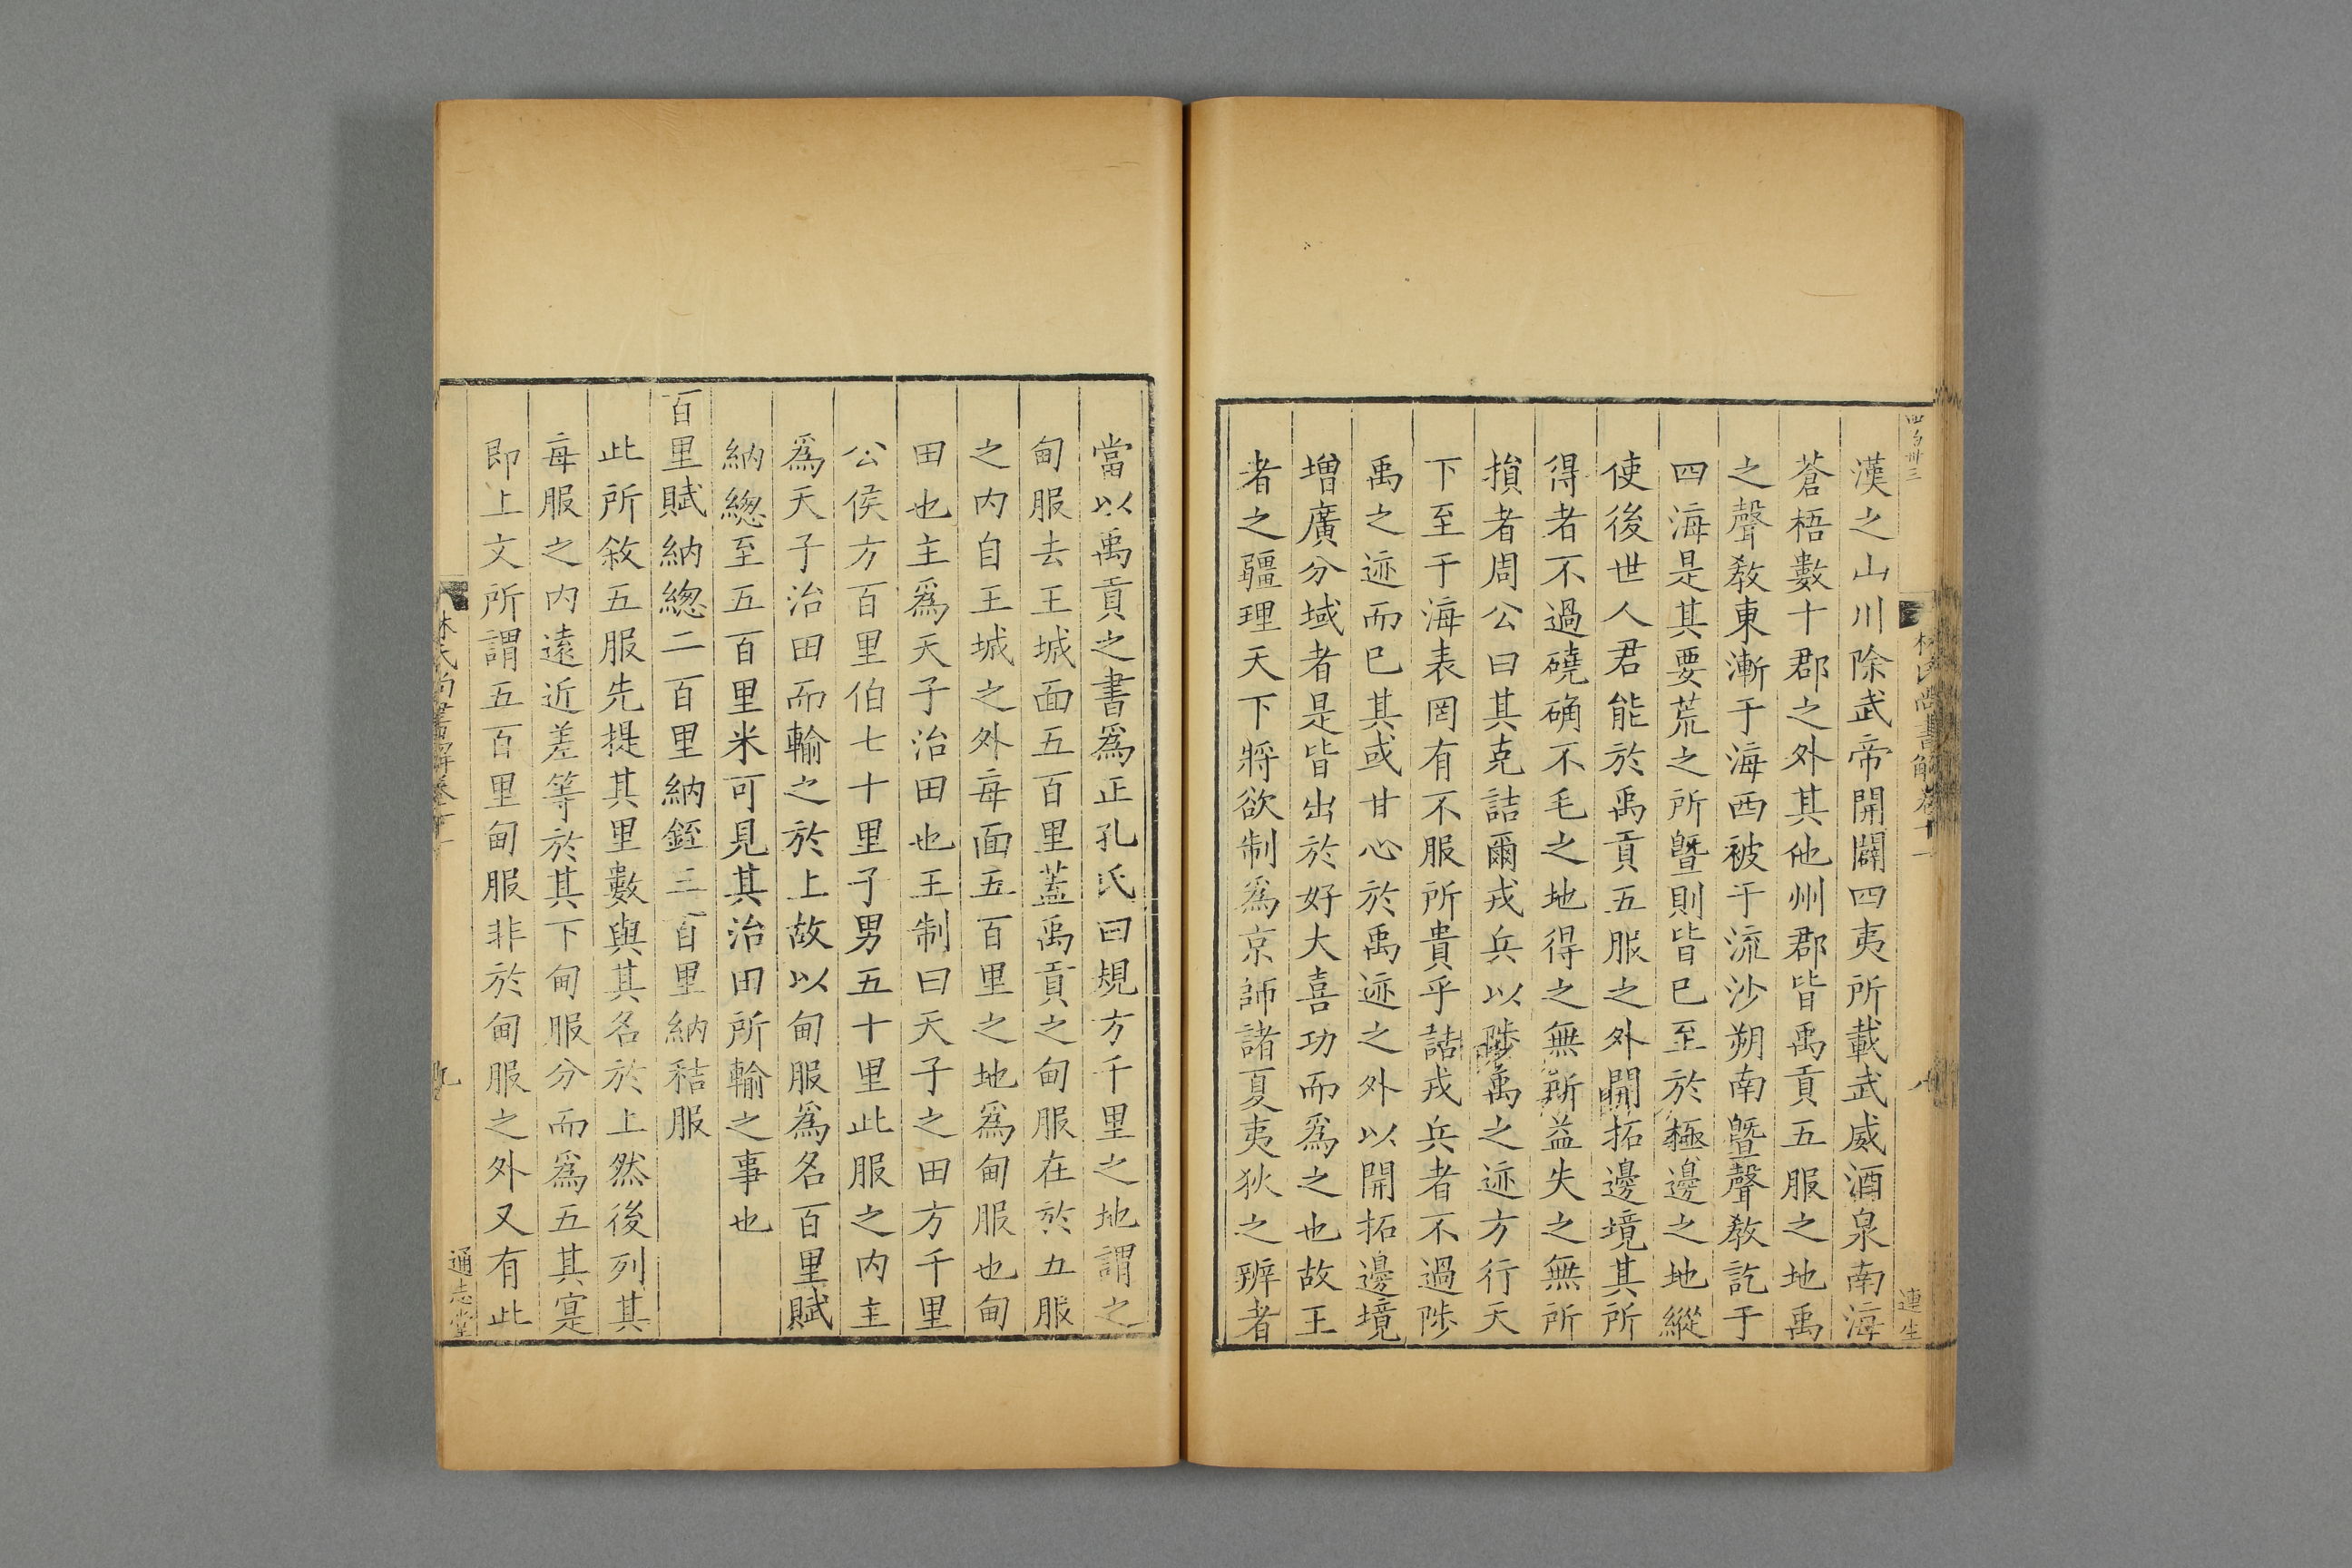 四百卅三
林氏尚書解卷十一
八
連生
漢之山川除武帝開闢四夷所載武威酒泉南海
蒼梧數十郡之外其他州郡皆禹貢五服之地禹
之聲教東漸于海西被于流沙朔南曁聲教訖于
四海是其要荒之所曁則皆巳至於極邊之地縱
使後世人君能於禹貢五服之外開拓邊境其所
得者不過磽确不毛之地得之無所益失之無所
損者周公曰其克詰爾戎兵以陟禹之迹方行天
下至于海表罔有不服所貴乎詰戎兵者不過陟
禹之迹而巳其或甘心於禹迹之外以開拓邊境
增廣分域者是皆出於好大喜功而爲之也故王
者之疆理天下將欲制爲京師諸夏夷狄之辨者
當以禹貢之書爲正孔氏曰規方千里之地謂之
甸服去王城面五百里蓋禹貢之甸服在於五服
之内自王城之外每面五百里之地爲甸服也甸
田也主爲天子治田也王制曰天子之田方千里
公侯方百里伯七十里子男五十里此服之内主
爲天子治田而輸之於上故以甸服爲名百里賦
納緫至五百里米可見其治田所輸之事也
百里賦納緫二百里納銍三百里納秸服
此所敘五服先提其里數與其名於上然後列其
每服之内遠近差等於其下甸服分而爲五其寔
即上文所謂五百里甸服非於甸服之外又有此
林氏尚書解卷十一
九
通志堂